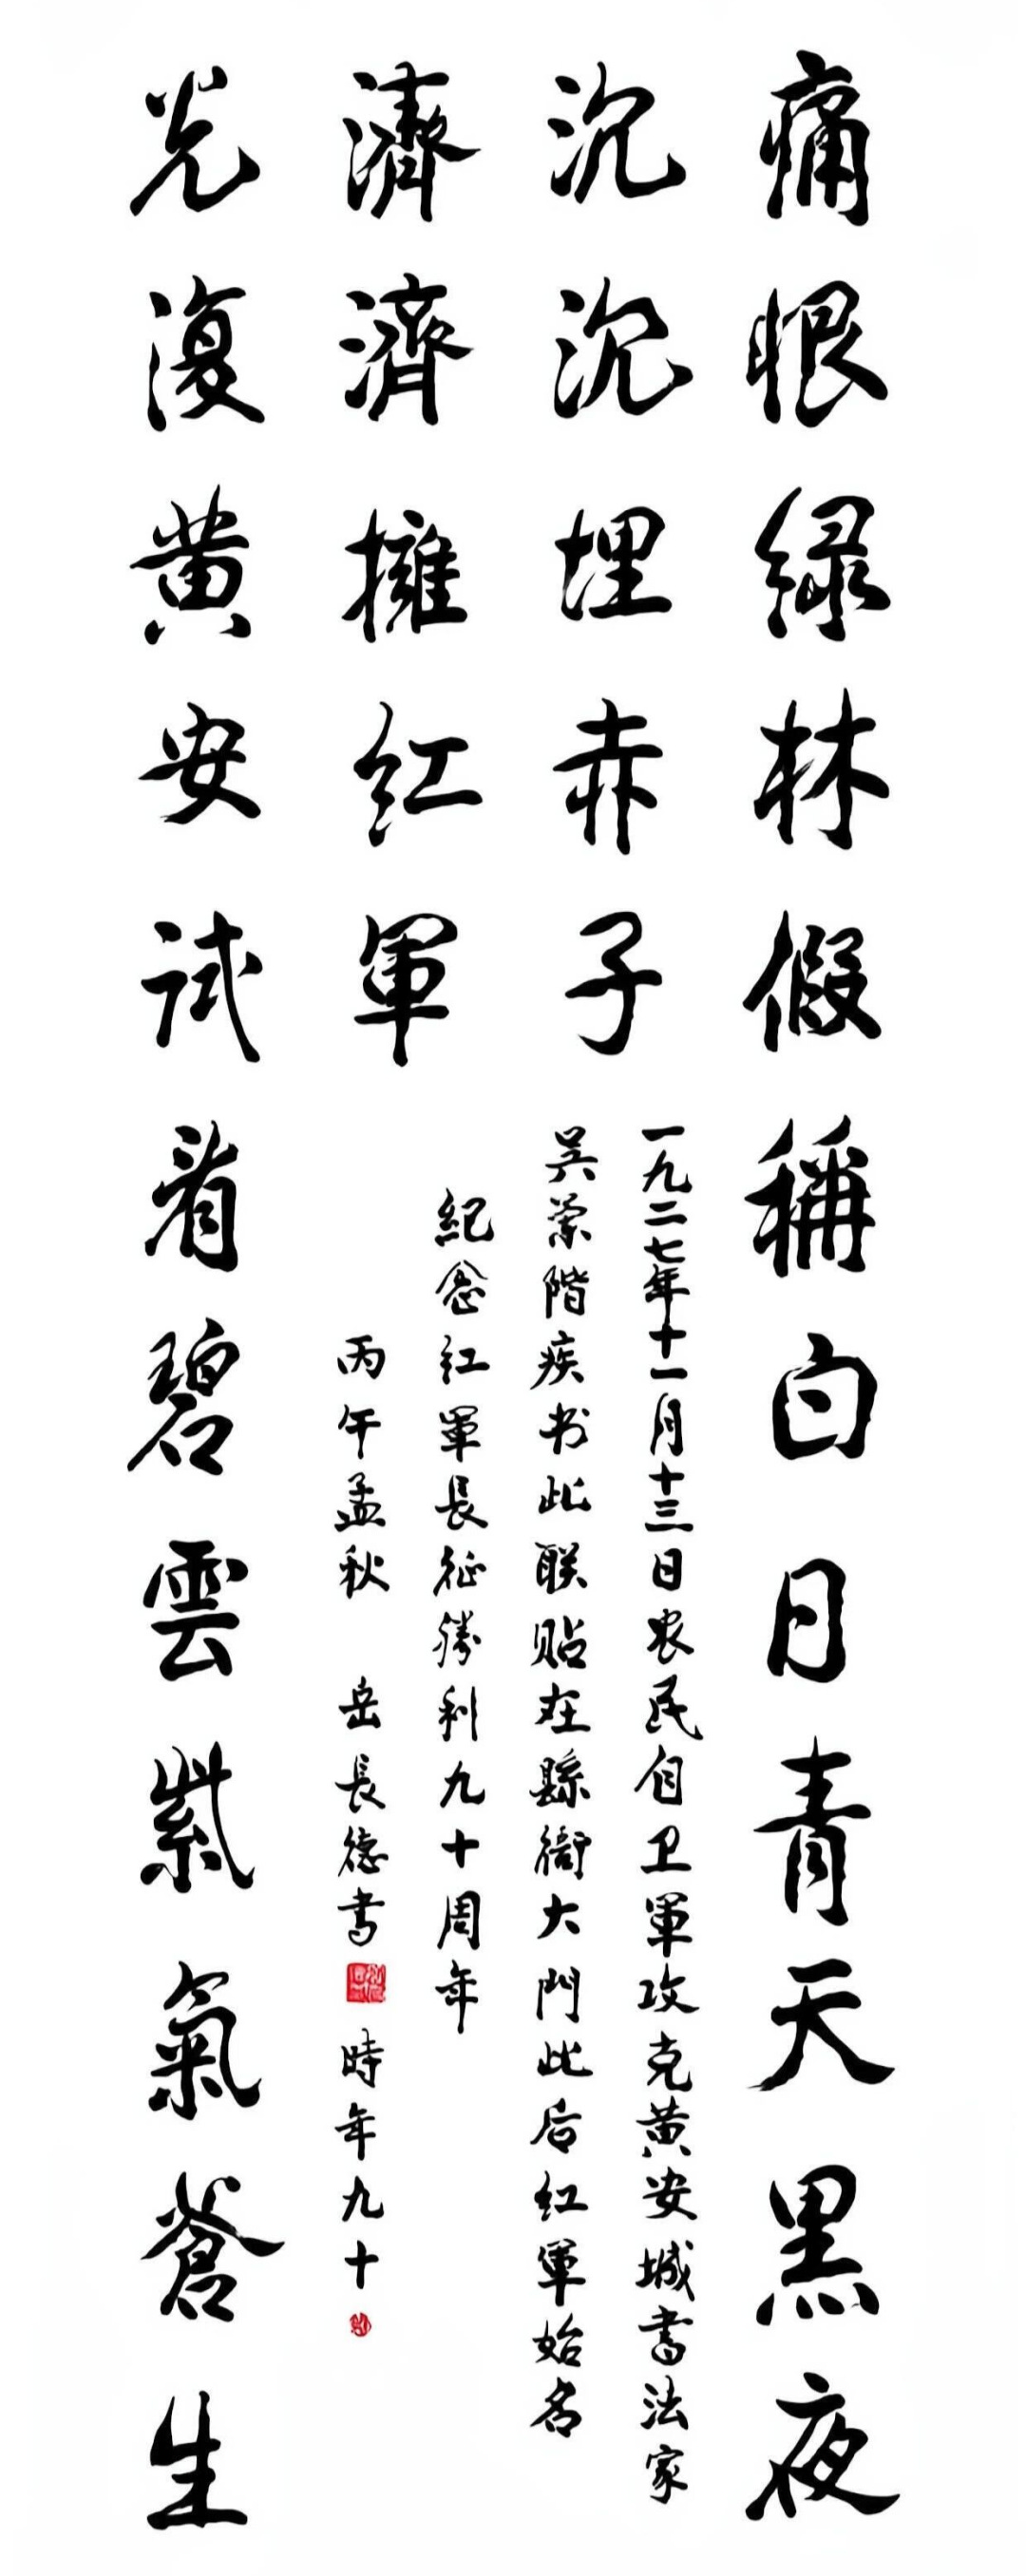 痛恨綠林假稱白日青天黑夜
沉沉埋赤子
一九二七年十一月十三日农民自卫軍攻克黄安城書法家
吴荣階疾书此联贴在縣衙大門此后红軍始名
紀念红軍長征勝利九十周年
濟濟擁红軍
丙午孟秋 岳長德書 時年九十
光復黄安試看碧雲紫氣蒼生